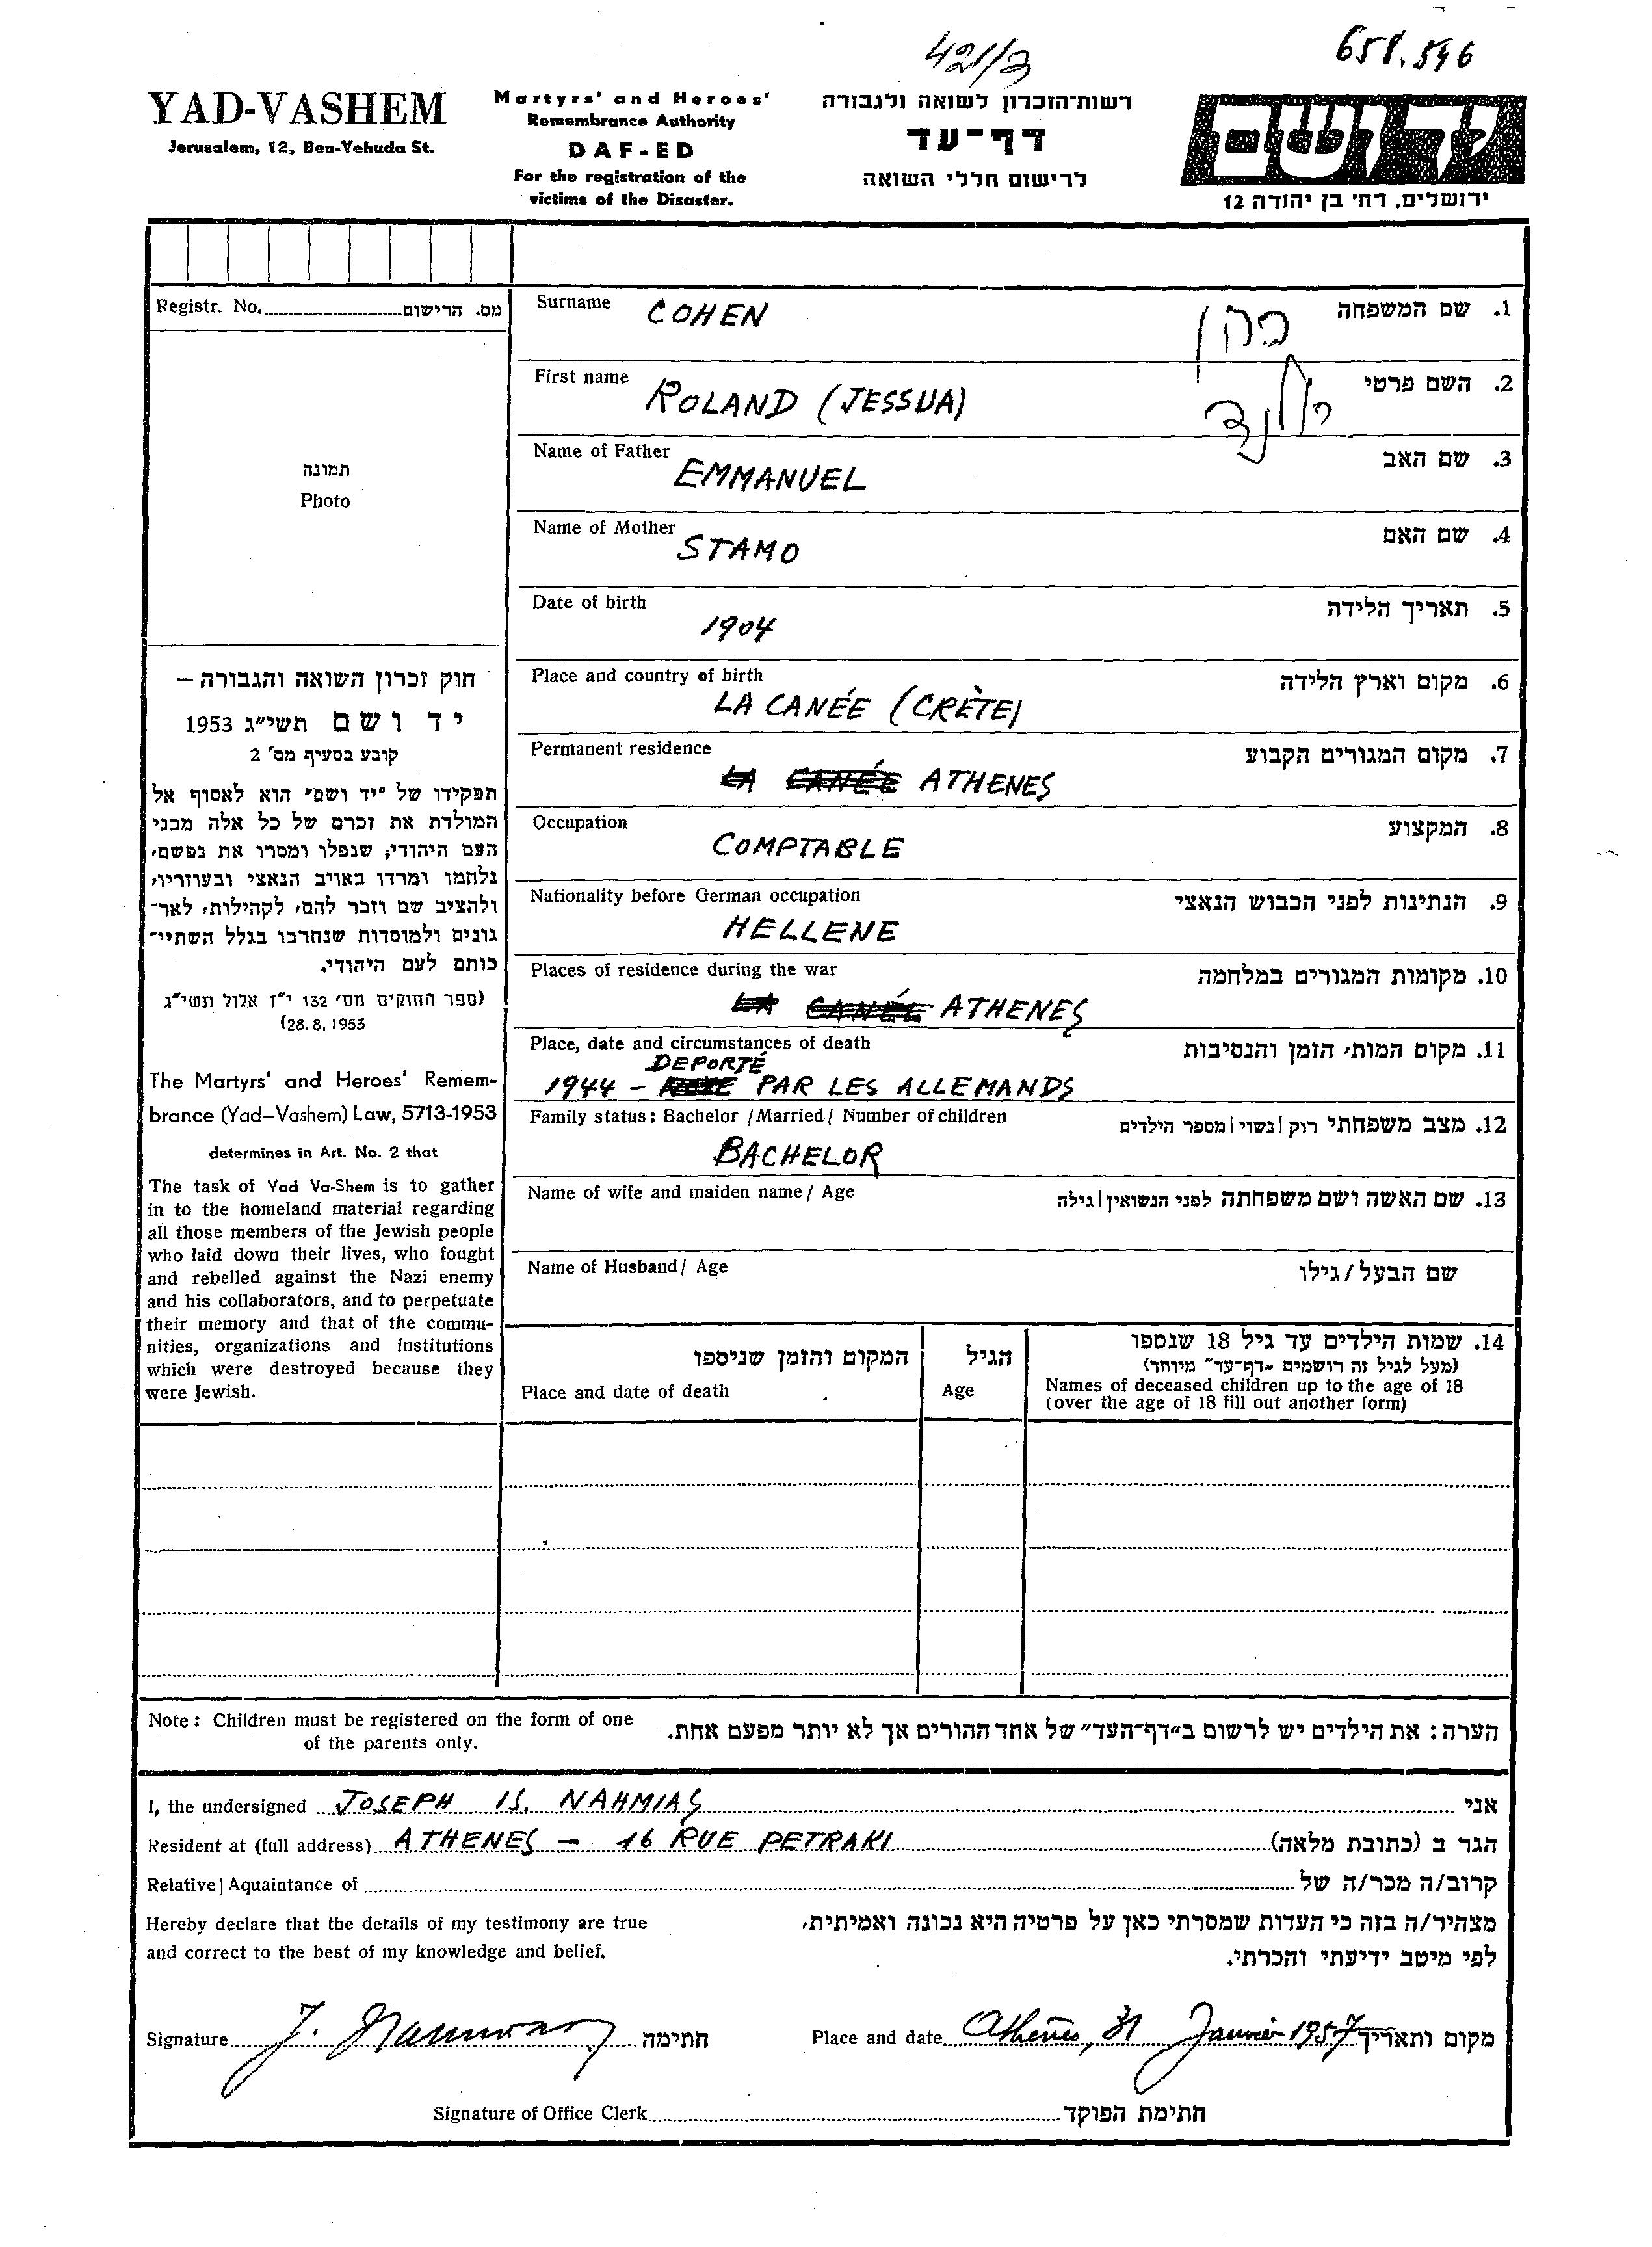 421/3
658.546
YAD-VASHEM
Jerusalem, 12, Ben-Yehuda St.
Martyrs' and Heroes'
Remembrance Authority
DAF-ED
For the registration of the
victims of the Disaster.
רשות־הזכרון לשואה ולגבורה
דף־עד
לרישום חללי השואה
ידושם
ירושלים, רח' בן יהודה 12
Registr. No. מס. הרישום
תמונה
Photo
חוק זכרון השואה והגבורה –
יד ושם תשי"ג 1953
קובע בסעיף מס' 2
תפקידו של "יד ושם" הוא לאסוף אל
המולדת את זכרם של כל אלה מבני
העם היהודי, שנפלו ומסרו את נפשם,
נלחמו ומרדו באויב הנאצי ובעוזריו,
ולהציב שם וזכר להם, לקהילות, לאר־
גונים ולמוסדות שנחרבו בגלל השתיי־
כותם לעם היהודי.
(ספר החוקים מס' 132 י"ז אלול תשי"ג
(28.8.1953
The Martyrs' and Heroes' Remem-
brance (Yad–Vashem) Law, 5713-1953
determines in Art. No. 2 that
The task of Yad Va-Shem is to gather
in to the homeland material regarding
all those members of the Jewish people
who laid down their lives, who fought
and rebelled against the Nazi enemy
and his collaborators, and to perpetuate
their memory and that of the commu-
nities, organizations and institutions
which were destroyed because they
were Jewish.
Surname COHEN כהן 1. שם המשפחה
First name ROLAND (JESSUA) רולנד 2. השם פרטי
Name of Father EMMANUEL 3. שם האב
Name of Mother STAMO 4. שם האם
Date of birth 1904 5. תאריך הלידה
Place and country of birth 6. מקום וארץ הלידה
LA CANÉE (CRÈTE)
Permanent residence 7. מקום המגורים הקבוע
LA CANÉE ATHENES
Occupation 8. המקצוע
COMPTABLE
Nationality before German occupation 9. הנתינות לפני הכבוש הנאצי
HELLENE
Places of residence during the war 10. מקומות המגורים במלחמה
LA CANÉE ATHENES
Place, date and circumstances of death 11. מקום המות, הזמן והנסיבות
DEPORTÉ
1944 – PAR LES ALLEMANDS
Family status: Bachelor /Married/ Number of children 12. מצב משפחתי רוק|נשוי|מספר הילדים
BACHELOR
Name of wife and maiden name/ Age 13. שם האשה ושם משפחתה לפני הנשואין|גילה
Name of Husband/ Age שם הבעל/גילו
14. שמות הילדים עד גיל 18 שנספו
(מעל לגיל זה רושמים "דף־עד" מיוחד)
Names of deceased children up to the age of 18
(over the age of 18 fill out another form)
הגיל
Age
המקום והזמן שניספו
Place and date of death
Note: Children must be registered on the form of one
of the parents only.
הערה: את הילדים יש לרשום ב"דף־העד" של אחד ההורים אך לא יותר מפעם אחת.
I, the undersigned JOSEPH IS. NAHMIAS אני
Resident at (full address) ATHENES – 16 RUE PETRAKI הגר ב (כתובת מלאה)
Relative | Aquaintance of קרוב/ה מכר/ה של
Hereby declare that the details of my testimony are true
and correct to the best of my knowledge and belief.
מצהיר/ה בזה כי העדות שמסרתי כאן על פרטיה היא נכונה ואמיתית,
לפי מיטב ידיעתי והכרתי.
Signature חתימה
Place and date Athènes, 31 Janvier 1957 מקום ותאריך
Signature of Office Clerk חתימת הפוקד